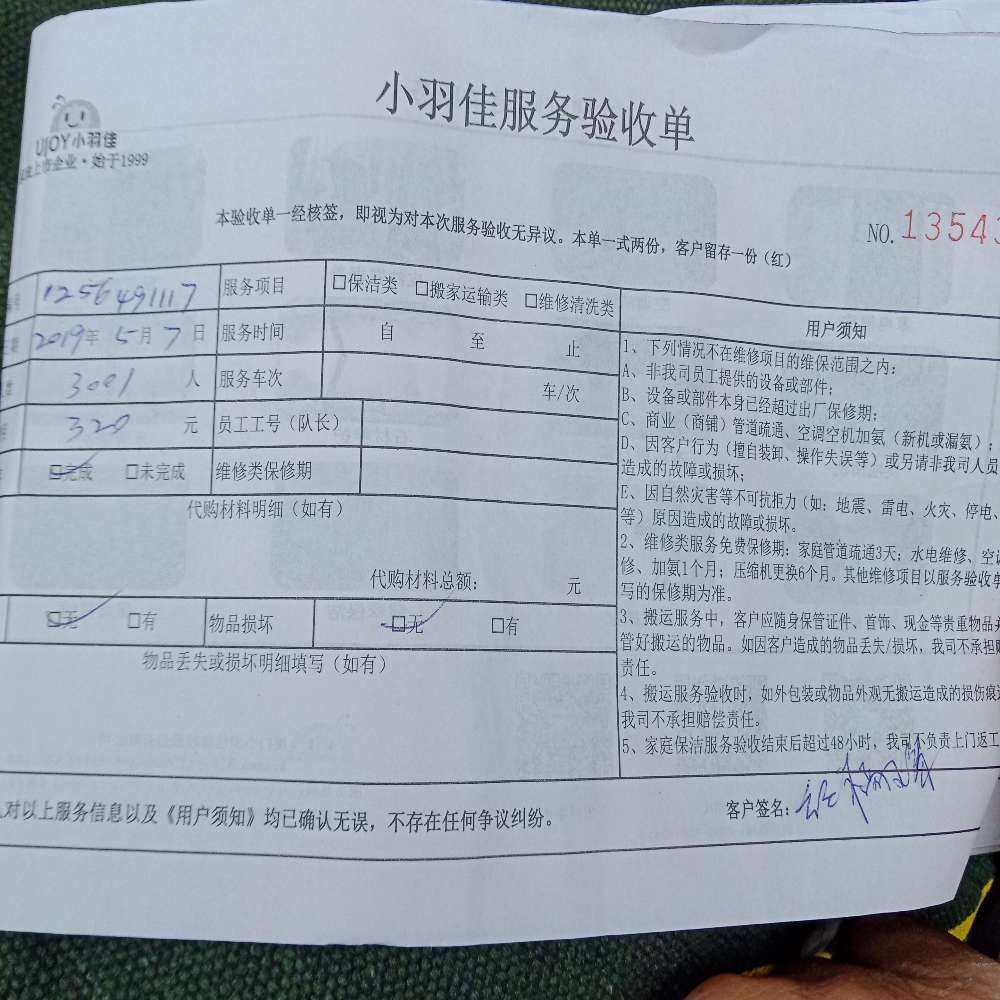 小羽佳服务验收单
UJOY小羽佳
上市企业·始于1999
本验收单一经核签，即视为对本次服务验收无异议。本单一式两份，客户留存一份（红）
NO.13543
1256491117 服务项目 □保洁类 □搬家运输类 □维修清洗类
2019年5月7日 服务时间 自 至 止
3001 人 服务车次 车/次
320 元 员工工号（队长）
□完成 □未完成 维修类保修期
代购材料明细（如有）
代购材料总额： 元
□无 □有 物品损坏 □无 □有
物品丢失或损坏明细填写（如有）
用户须知
1、下列情况不在维修项目的维保范围之内：
A、非我司员工提供的设备或部件；
B、设备或部件本身已经超过出厂保修期；
C、商业（商铺）管道疏通、空调空机加氨（新机或漏氨）；
D、因客户行为（擅自装卸、操作失误等）或另请非我司人员
造成的故障或损坏；
E、因自然灾害等不可抗拒力（如：地震、雷电、火灾、停电、
等）原因造成的故障或损坏。
2、维修类服务免费保修期：家庭管道疏通3天；水电维修、空调
修、加氨1个月；压缩机更换6个月。其他维修项目以服务验收单
写的保修期为准。
3、搬运服务中，客户应随身保管证件、首饰、现金等贵重物品并
管好搬运的物品。如因客户造成的物品丢失/损坏，我司不承担赔
责任。
4、搬运服务验收时，如外包装或物品外观无搬运造成的损伤痕迹
我司不承担赔偿责任。
5、家庭保洁服务验收结束后超过48小时，我司不负责上门返工
对以上服务信息以及《用户须知》均已确认无误，不存在任何争议纠纷。
客户签名：